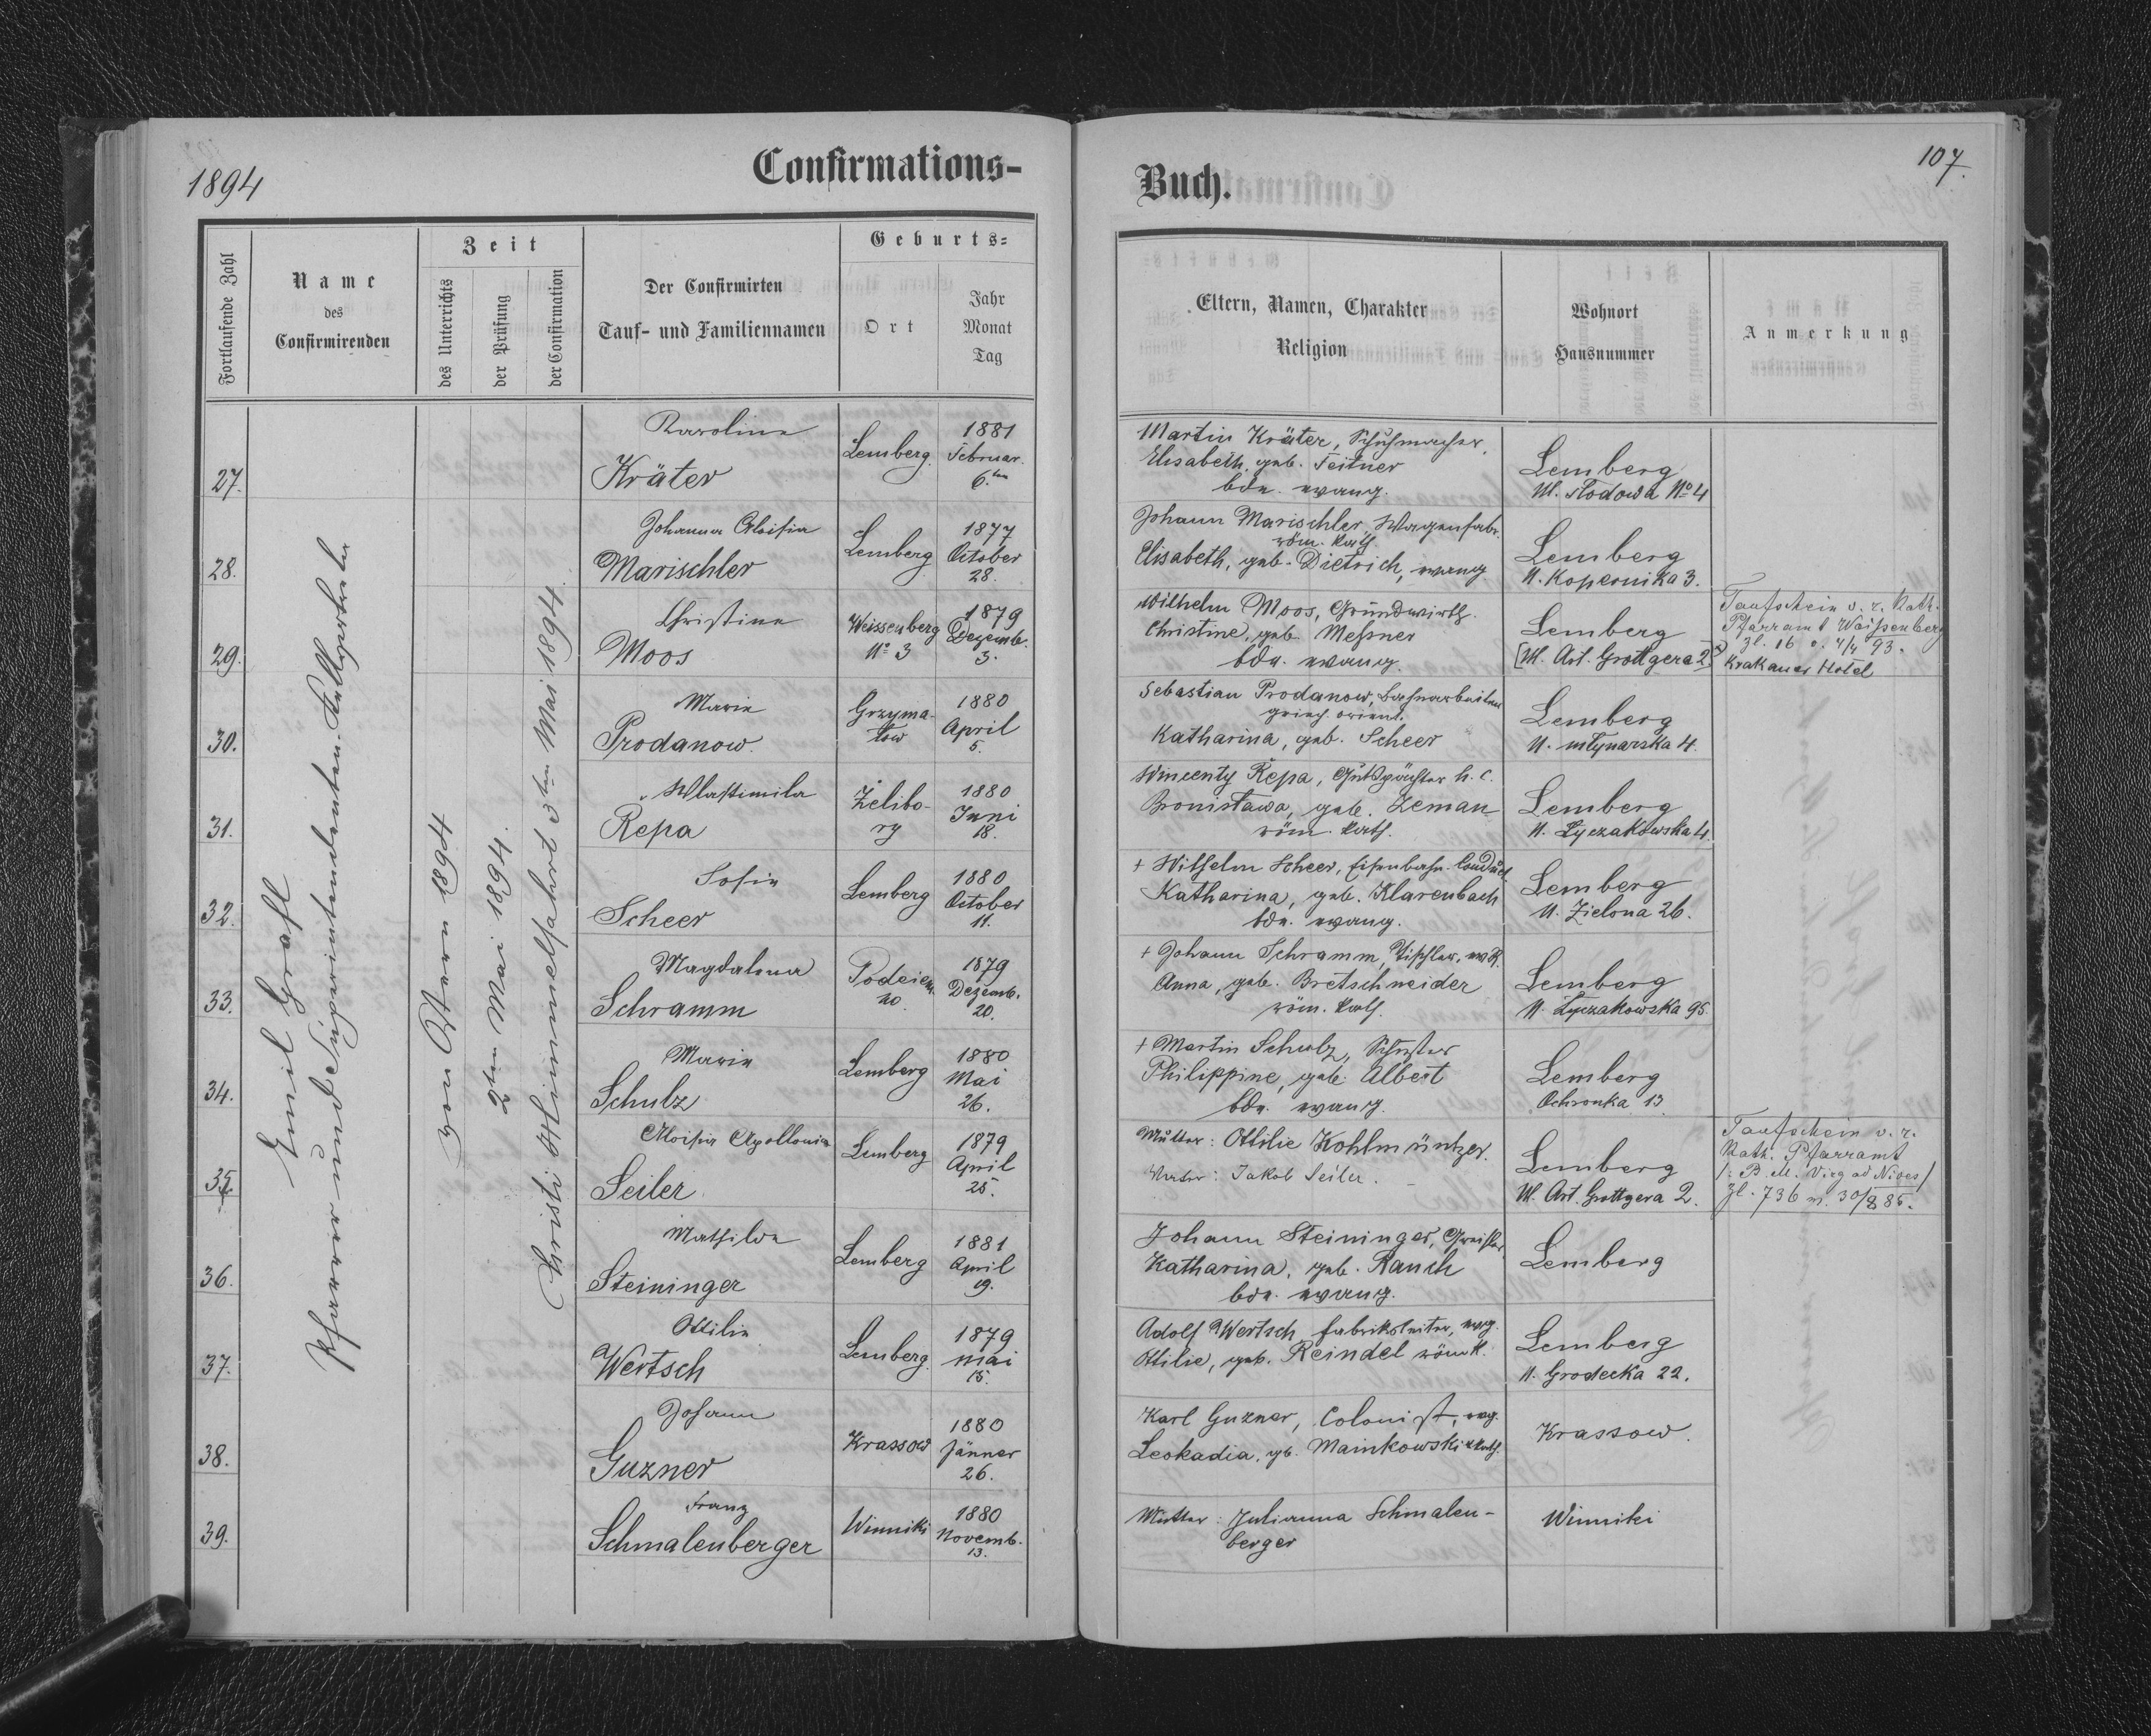 1894
Confirmations-
Fortlaufende Zahl
Name
des
Confirmirenden
Zeit
des Unterrichts
der Prüfung
der Confirmation
Der Confirmirten
Tauf- und Familiennamen
Geburts=
Ort
Jahr
Monat
Tag
Emil Grafl
Pfarrer und Superintendenten-Stellvertreter
von Ostern 1894
2ten Mai 1894.
Christi Himmelfahrt 3ten Mai 1894.
27.
Karoline
Kräter
Lemberg.
1881
Februar.
6.ten
28.
Johanna Aloisia
Marischler
Lemberg
1877
October
28.
29.
Christine
Moos
Weissenberg
No 3
1879
Dezemb.
3.
30.
Marie
Prodanow.
Grzyma-
low
1880
April
5.
31.
Wlastimila
Řepa
Żelibo-
ry
1880
Juni
18.
32.
Sofie
Scheer
Lemberg
1880
October
11.
33.
Magdalena
Schramm
1879
Dezemb.
20.
34.
Marie
Schulz
Lemberg
1880
Mai
26.
35.
Aloisia Apollonia
Seiler
Lemberg
1879
April
25.
36.
Mathilde
Steininger
Lemberg
1881
April
19.
37.
Ottilie
Wertsch
Lemberg.
1879
Mai
15.
38.
Johann
Guzner
Krassow
1880
Jänner
26.
39.
Franz
Schmalenberger
Winniki
1880
Novemb.
13.
107.
Buch.
Eltern, Namen, Charakter
Religion
Wohnort
Hausnummer
Anmerkung
Martin Kräter, Schuhmacher,
Elisabeth, geb. Feitner
bde. evang.
Lemberg
Ul. Słodowa No 4
Johann Marischler, Wagenfabr.
röm. kath.
Elisabeth, geb. Dietrich, evang
Lemberg
U. Kopernika 3.
Wilhelm Moos, Grundwirth.
Christine, geb. Meßner
bde. evang.
Lemberg
[Ul. Art. Grottgera 2]
Taufschein v. r. Kath.
Pfarramt Weißenberg
Zl. 16 v. 4/4 93.
Krakauer Hotel
Sebastian Prodanow, Bahnarbeiter
griech. orient.
Katharina, geb. Scheer
Lemberg
U. Młynarska 4.
Wincenty Řepa, Gutspächter h. c.
Bronisława, geb. Zeman
röm. kath.
Lemberg
U. Łyczakowska 4.
+ Wilhelm Scheer, Eisenbahn-Conduct.
Katharina, geb. Klarenbach
bde. evang.
Lemberg
U. Zielona 26.
+ Johann Schramm, Tischler,
Anna, geb. Bretschneider
röm. kath.
Lemberg
U. Łyczakowska 95.
+ Martin Schulz, Schuster
Philippine, geb. Albert
bde. evang.
Lemberg
Ochronka 13
Mutter: Ottilie Kohlmüntzer.
Vater: Jakob Seiler.
Lemberg
Ul. Art. Grottgera 2.
Taufschein v. r.
Kath. Pfarramt
/: B. M. Virg ad Nives/
Zl. 736 v. 30/8 85.
Johann Steininger, Greisler,
Katharina, geb. Rauch
bde. evang.
Lemberg
Adolf Wertsch, Fabriksleiter, evg.
Ottilie, geb. Reindel röm k.
Lemberg
U. Grodecka 22.
Karl Guzner, Colonist, evg.
Leokadia, gb. Mainkowski r. kath.
Krassow.
Mutter: Julianna Schmalen-
berger
Winniki